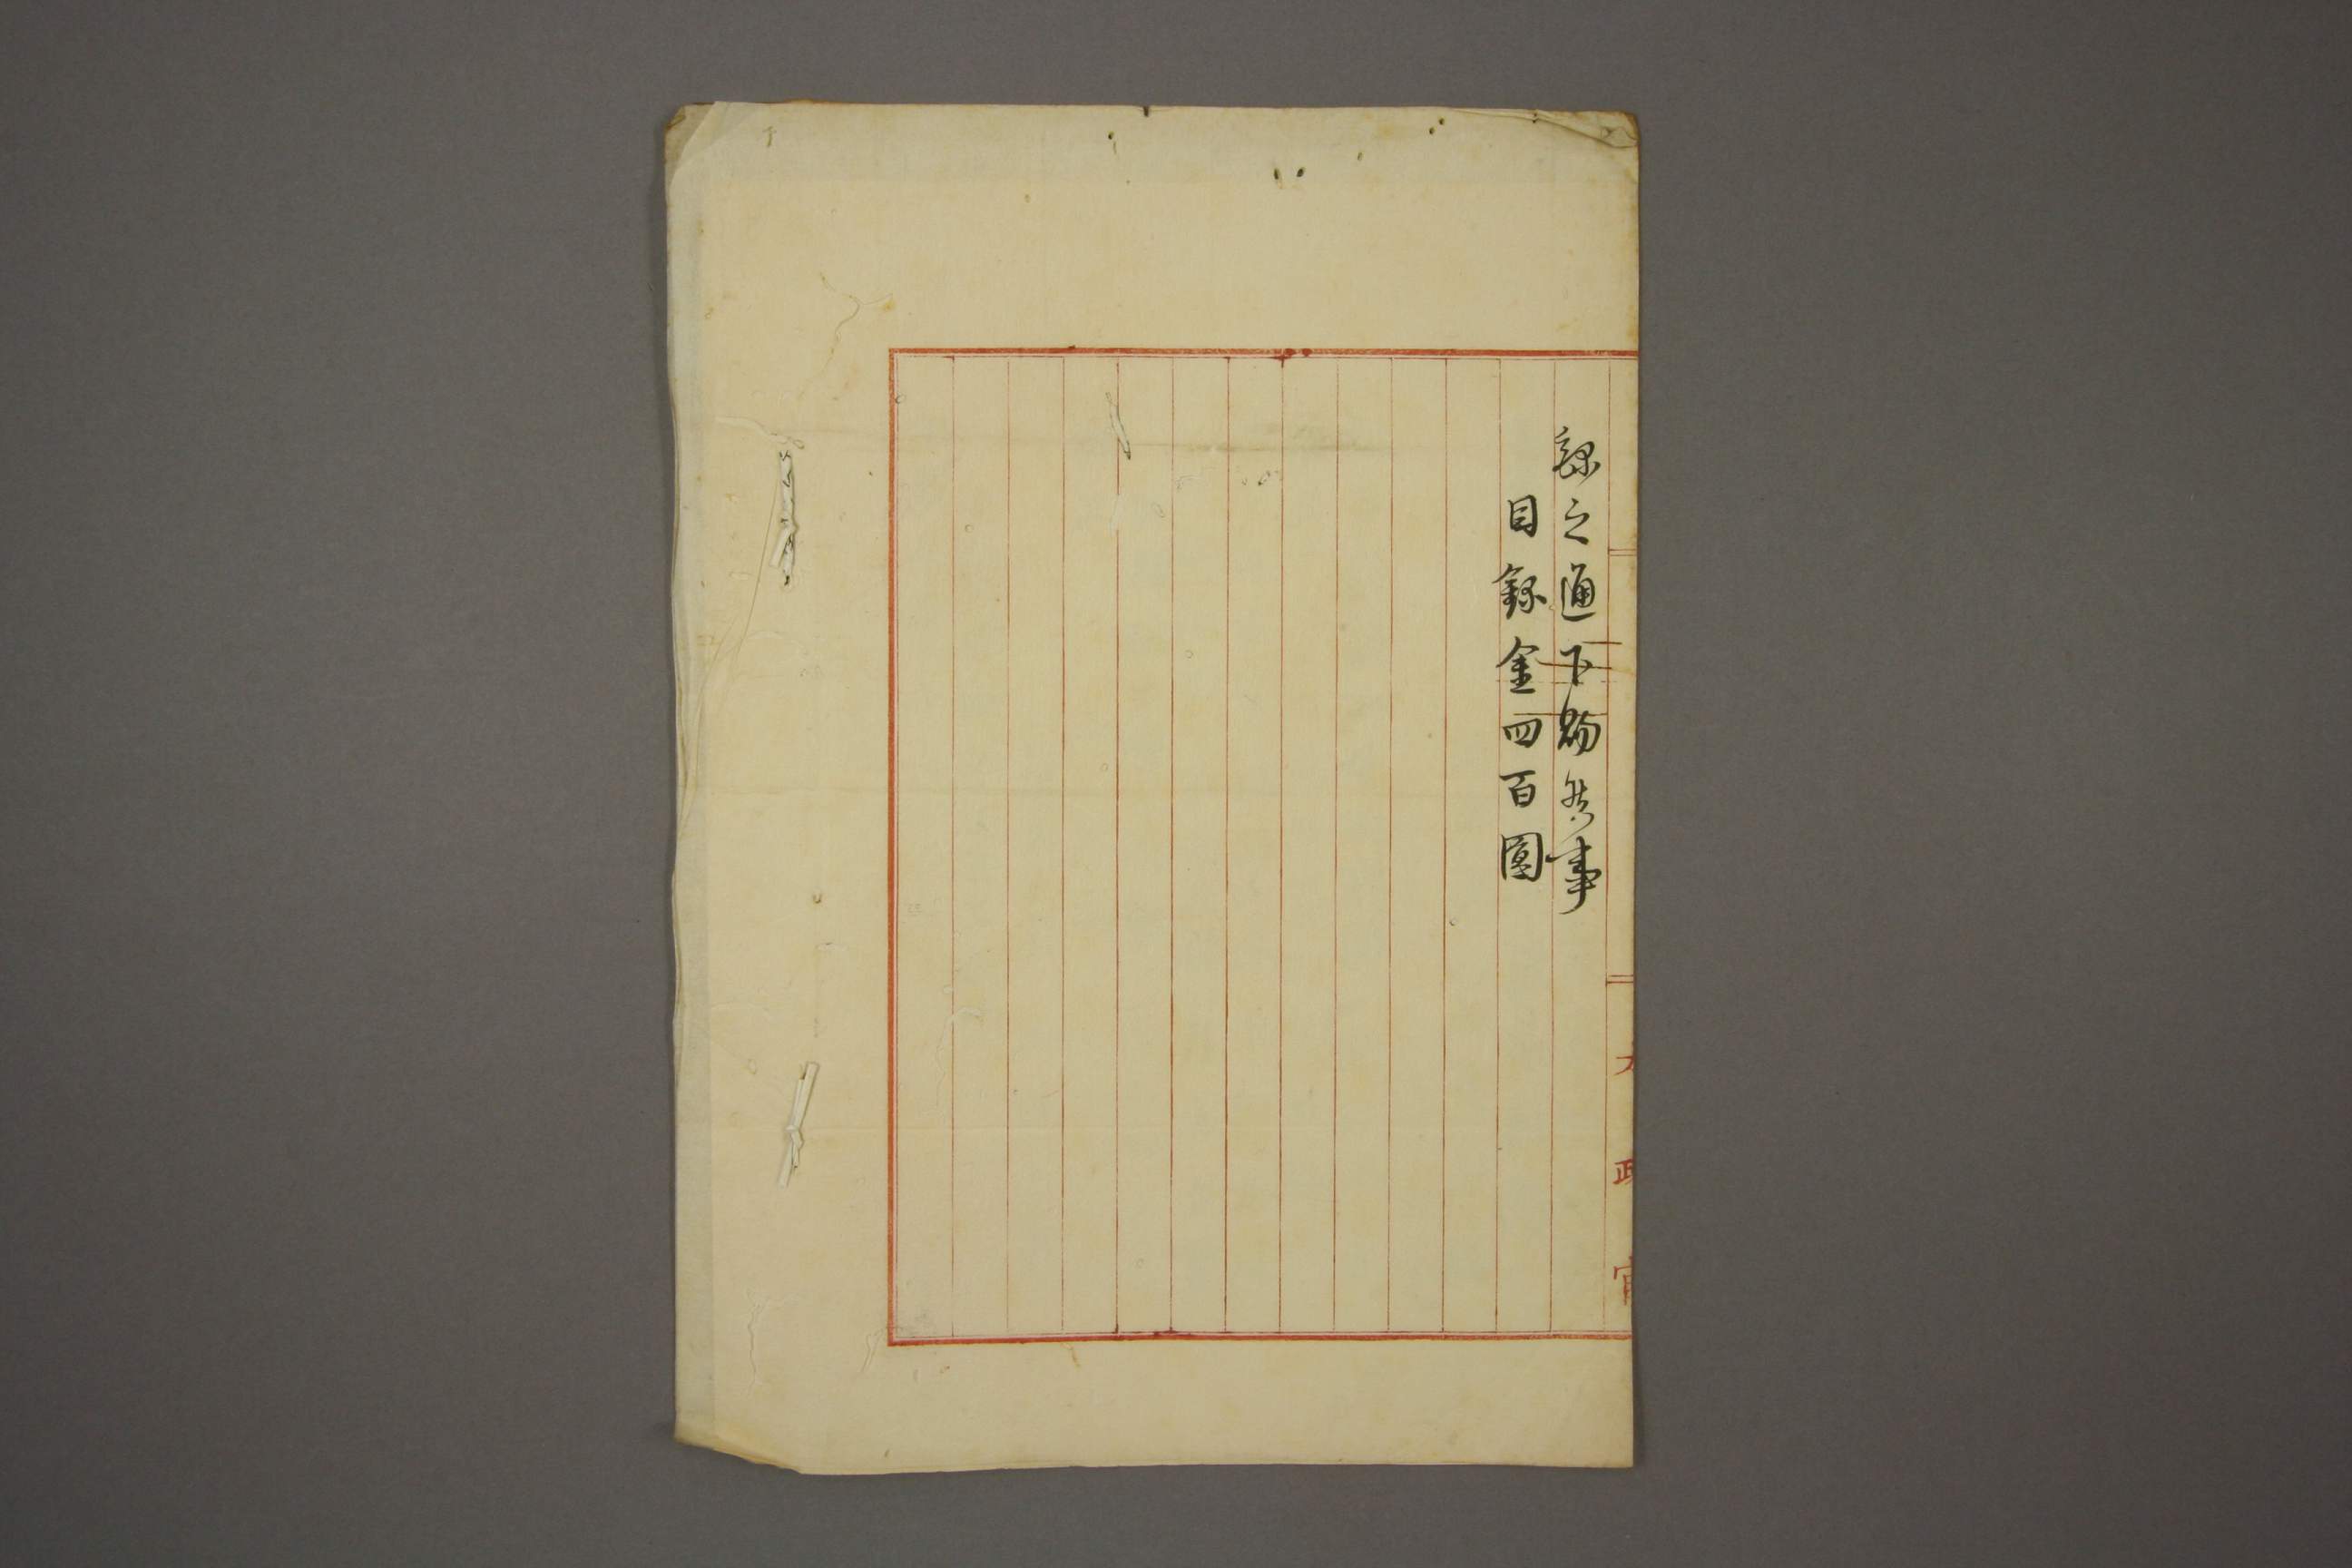 録之通下賜候事
目録金四百圓
太政官